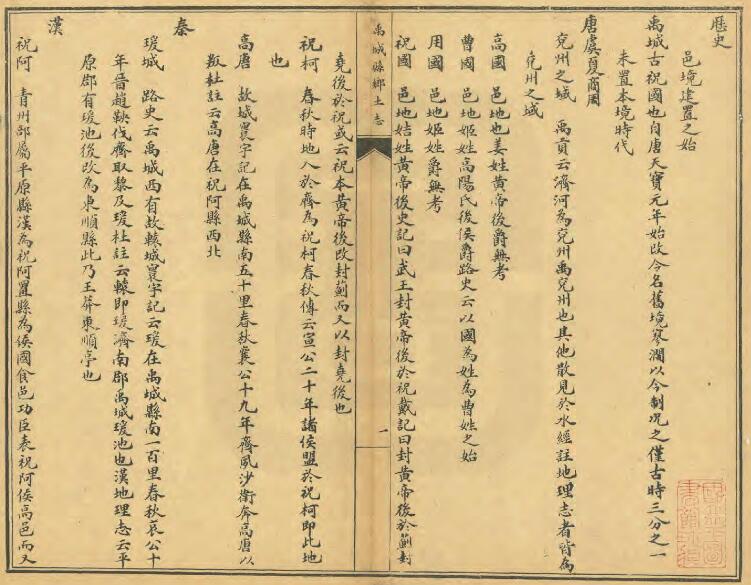 歷史
邑境建置之始
禹城古祝國也自唐天寶元年始改今名舊境寥濶以今制况之僅古時三分之一
未置本境時代
唐虞夏商周
兗州之域　禹貢云濟河為兗州禹兗州也其他散見於水經註地理志者皆為
兗州之域
高國　邑地也姜姓黃帝後爵無考
曹國　邑地姬姓高陽氏後侯爵路史云以國為姓為曹姓之始
用國　邑地姬姓爵無考
祝國　邑地姞姓黃帝後史記曰武王封黃帝後於祝戴記曰封黃帝後於薊封
禹城縣鄉土志
一
堯後於祝或云祝本黃帝後改封薊而又以封堯後也
祝柯　春秋時地入於齊為祝柯春秋傳云宣公二十年諸侯盟於祝柯即此地
也
高唐　故城寰宇記在禹城縣南五十里春秋襄公十九年齊夙沙衛奔高唐以
叛杜註云高唐在祝阿縣西北
秦
瑗城　路史云禹城西有故轅城寰宇記云瑗在禹城縣南一百里春秋哀公十
年晉趙鞅伐齊取犂及瑗杜註云轅即瑗濟南郡禹城瑗池也漢地理志云平
原郡有瑗池後改為東順縣此乃王莽東順亭也
漢
祝阿　青州部屬平原縣漢為祝阿置縣為侯國食邑功臣表祝阿侯高邑而又